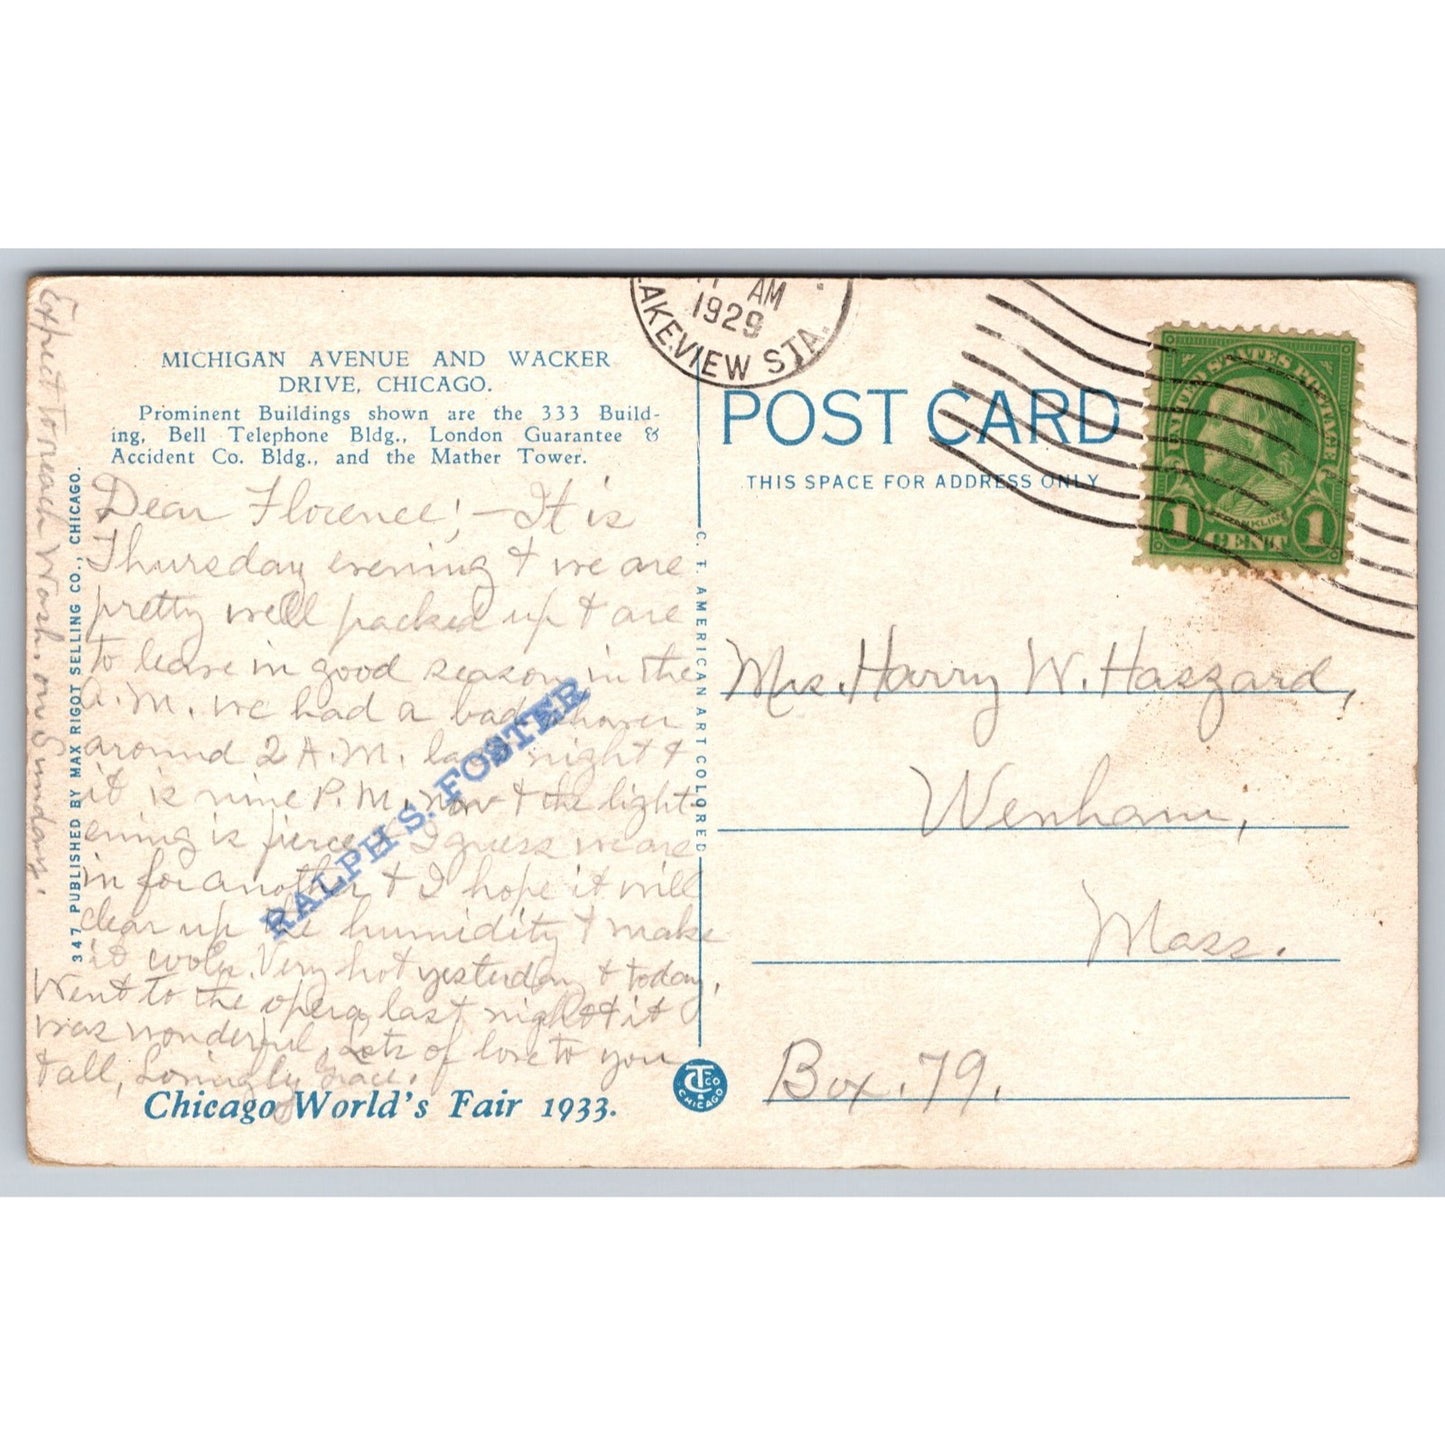 MICHIGAN AVENUE AND WACKER
DRIVE, CHICAGO.
Prominent Buildings shown are the 333 Build-
ing, Bell Telephone Bldg., London Guarantee &
Accident Co. Bldg., and the Mather Tower.
Dear Florence; - It is
Thursday evening + we are
pretty well packed up + are
to leave in good season in the
A.M. we had a bad shower
around 2 A.M. last night +
it is nine P.M. now + the light-
ening is fierce I guess we are
in for another + I hope it will
clear up the humidity + make
it cooler. Very hot yesterday + today.
Went to the opera last night + it
was wonderful. Lots of love to you
+ all, Lovingly Grace.
Expect to reach Wash. on Sunday.
RALPH S. FOSTER
347 PUBLISHED BY MAX RIGOT SELLING CO., CHICAGO.
Chicago World's Fair 1933.
C. T. AMERICAN ART COLORED
CT & CO CHICAGO
AM
1929
LAKEVIEW STA.
POST CARD
THIS SPACE FOR ADDRESS ONLY
UNITED STATES POSTAGE
FRANKLIN
1 CENT 1
Mrs. Harry W. Haszard,
Wenham,
Mass.
Box. 79.